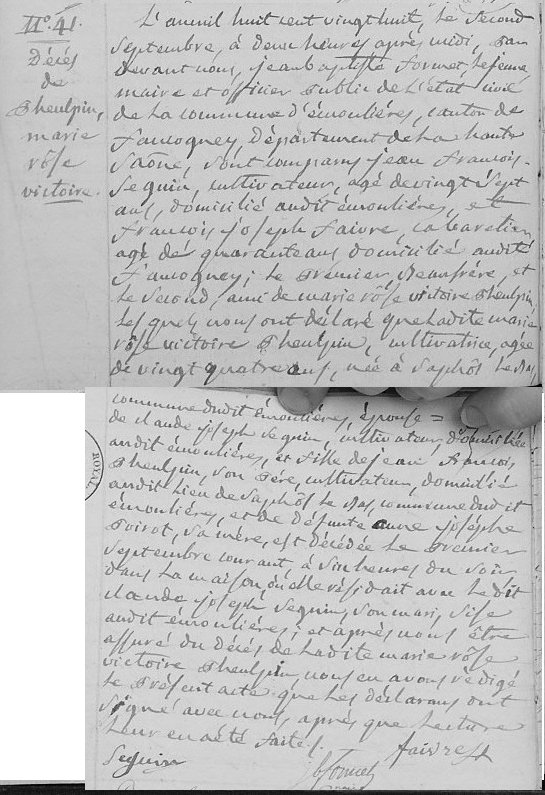 N.° 41.
Décés
de
Pheulpin,
marie
rôse
victoire.
L'an mil huit cent vingt huit, le second
Septembre, à deux heures après midi, par
devant nous, jean baptiste formet, le jeune,
maire et officier public de l'état civil
de la commune d'émouliéres, canton de
faucogney, département de la haute
Saône, sont comparus jean françois
Seguin, cultivateur, agé de vingt Sept
ans, domicilié audit émouliéres, et
françois joseph faivre, cabaretier,
agé de quarante ans domicilié audit
faucogney; le premier Beaufrére, et
le Second ami de marie rôse victoire Pheulpin,
lesquels nous ont déclaré que ladite marie
rôse victoire Pheulpin, cultivatrice, agée
de vingt quatre ans, née à Saphôs le Bas,
commune dudit émouliéres, épouse =
de claude joseph Seguin, cultivateur, domiciliée
audit émouliéres, et fille de jean françois
Pheulpin, son pére, cultivateur, domicilié
audit lieu de Saphôs le Bas, commune dudit
émouliéres, et de défunte anne joséphe
Poirot, sa mére, est décédée le premier
Septembre courant, à Six heures du Soir
dans la maison où elle résidait avec le dit
claude joseph Seguin, son mari, Sise
audit émouliéres; et après nous être
assuré du décés de ladite marie rôse
victoire Pheulpin, nous en avons rédigé
le présent acte que les déclarans ont
Signé avec nous, après que lecture
leur en a été faite.
Seguin
jb formet
faivre
ROYAL